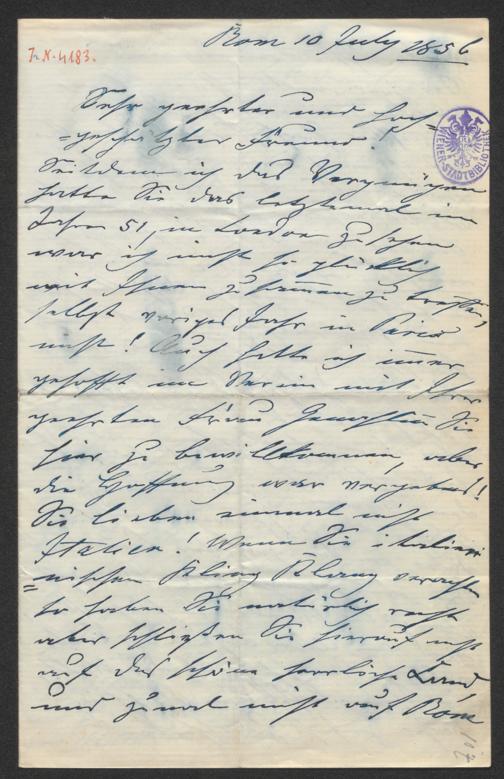 J. N. 4183.
Rom 10 July 1856
Sehr geehrter und hoch-
=geschätzter Freund!
Seitdem ich das Vergnügen
hatte Sie das letztemal im
Jahre 51, in London zu sehen
war ich nicht so glücklich
mit Ihnen zusammen zu treffen,
selbst voriges Jahr in Paris
nicht! Auch hatte ich immer
gehofft im Verein mit Ihrer
geehrten Frau Gemahlin Sie
hier zu bewillkommen, aber
die Hoffnung war vergebens!
Sie lieben einmal nicht
Italien! Wenn Sie italieni-
=nischen Kling Klang
so haben Sie natürlich recht
aber schließen Sie hierauf nicht
auf das schöne herrliche Land
und zumal nicht auf Rom
WIENER-STADTBIBLIOTHEK